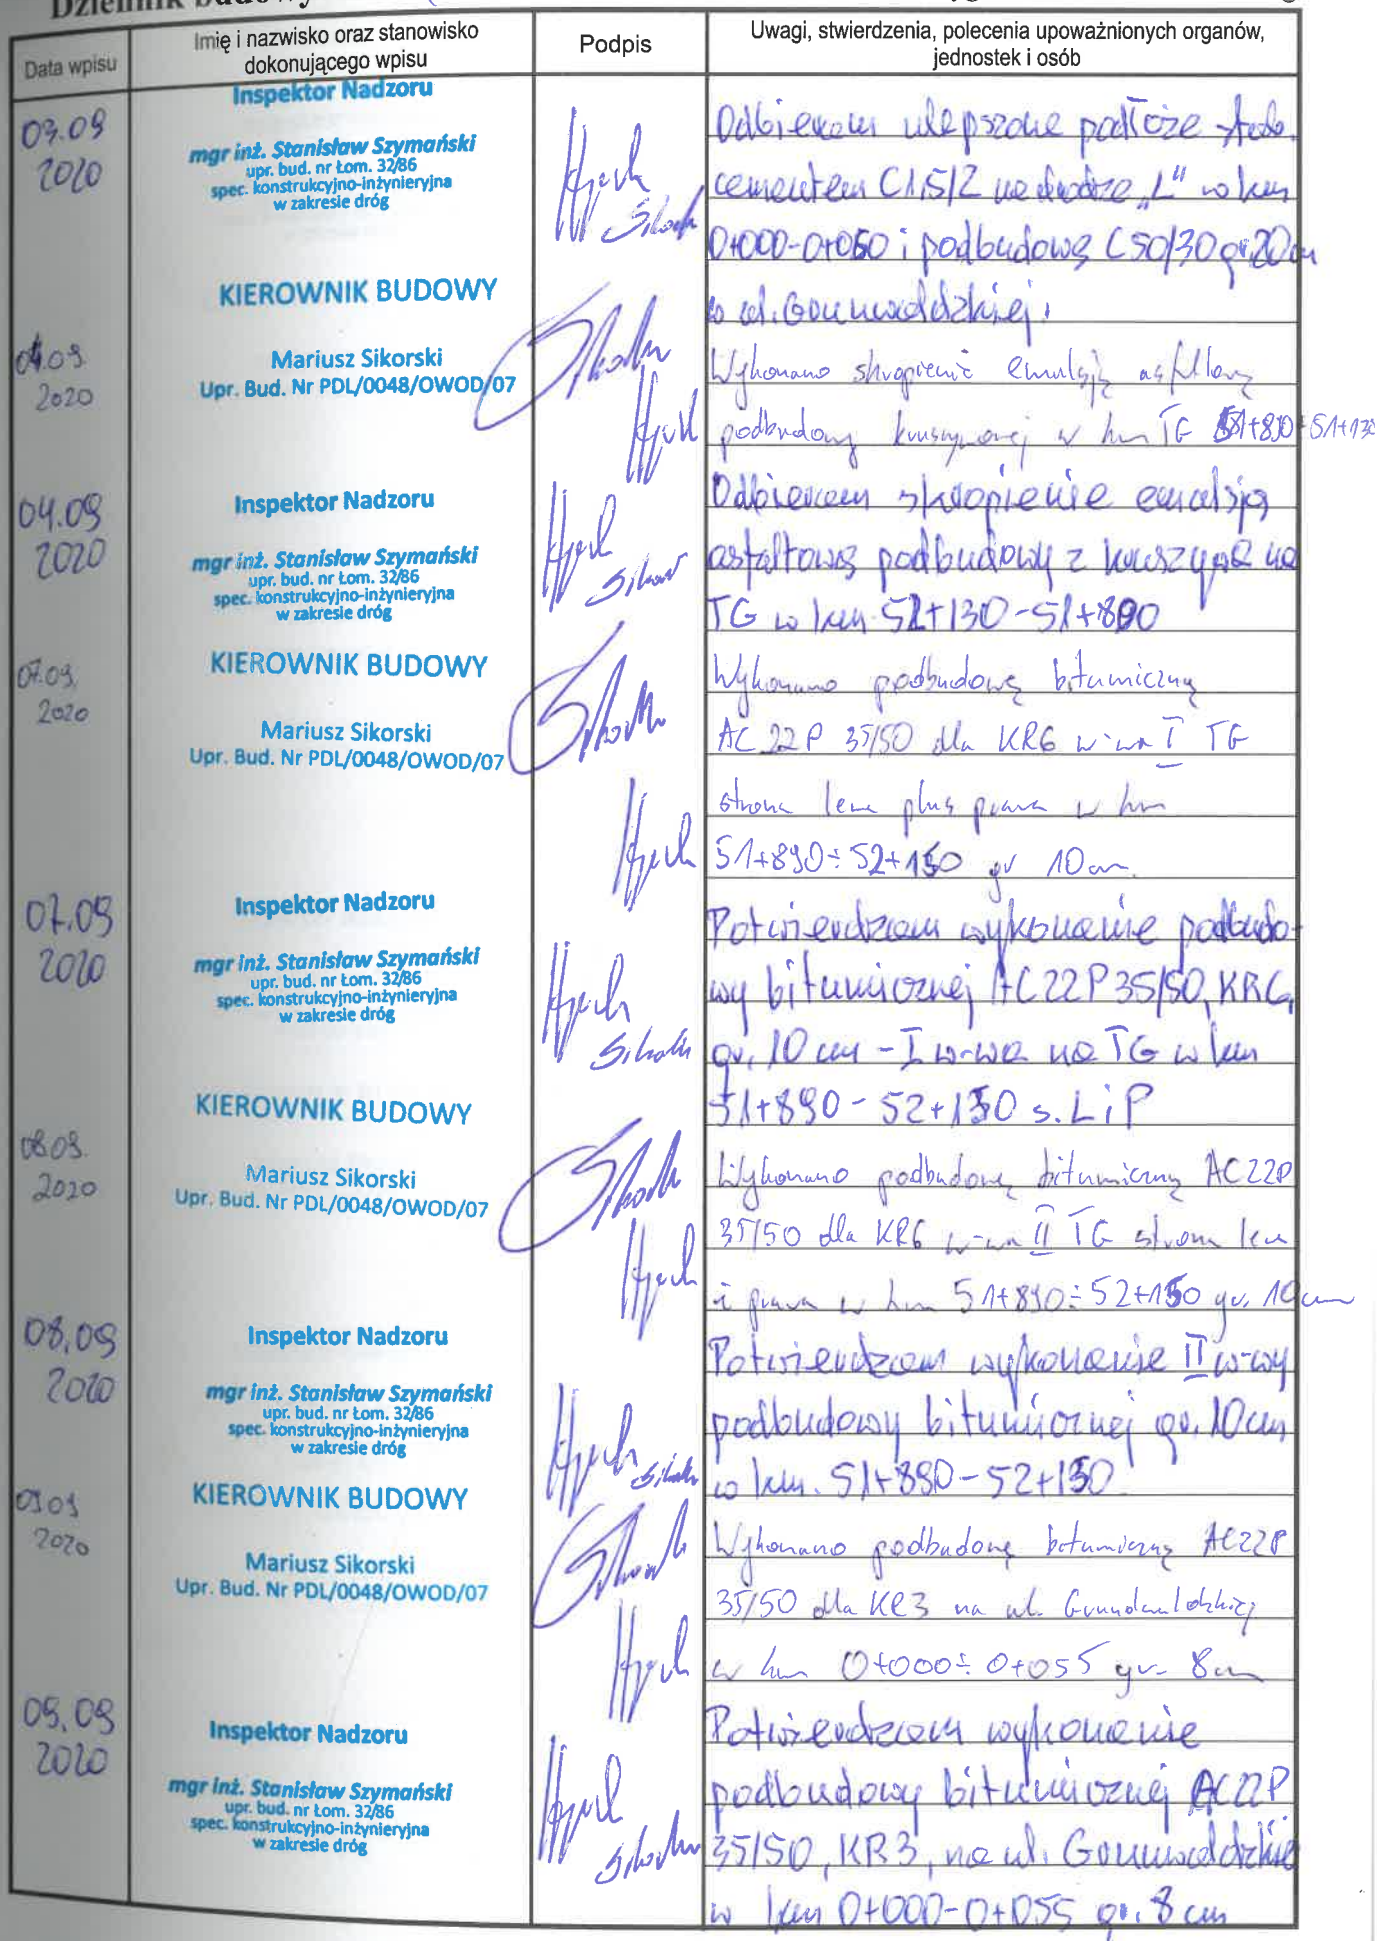 Dziennik budowy
Data wpisu
Imię i nazwisko oraz stanowisko
dokonującego wpisu
Podpis
Uwagi, stwierdzenia, polecenia upoważnionych organów,
jednostek i osób
03.09
2020
Inspektor Nadzoru
mgr inż. Stanisław Szymański
upr. bud. nr Łom. 32/86
spec. konstrukcyjno-inżynieryjna
w zakresie dróg
Odbieram ulepszone podłoże
cementem C1,5/2 na drodze „L" w km
0+000-0+060 i podbudowę C50/30 gr. 20 cm
w ul. Grunwaldzkiej.
04.09.
2020
KIEROWNIK BUDOWY
Mariusz Sikorski
Upr. Bud. Nr PDL/0048/OWOD/07
Wykonano skropienie emulsją asfaltową
podbudowy kruszywowej w km TG 51+890÷51+130
04.09
2020
Inspektor Nadzoru
mgr inż. Stanisław Szymański
upr. bud. nr Łom. 32/86
spec. konstrukcyjno-inżynieryjna
w zakresie dróg
Odbieram skropienie emulsją
asfaltową podbudowy z kruszywa na
TG w km 52+130-51+890
07.09.
2020
KIEROWNIK BUDOWY
Mariusz Sikorski
Upr. Bud. Nr PDL/0048/OWOD/07
Wykonano podbudowę bitumiczną
AC 22P 35/50 dla KR6 w-wa I TG
strona lewa plus prawa w km
51+890÷52+150 gr 10cm.
07.09
2020
Inspektor Nadzoru
mgr inż. Stanisław Szymański
upr. bud. nr Łom. 32/86
spec. konstrukcyjno-inżynieryjna
w zakresie dróg
Potwierdzam wykonanie podbudo-
wy bitumicznej AC22P35/50, KR6,
gr. 10 cm - I w-wa na TG w km
51+890-52+150 s. L i P
08.09.
2020
KIEROWNIK BUDOWY
Mariusz Sikorski
Upr. Bud. Nr PDL/0048/OWOD/07
Wykonano podbudowę bitumiczną AC22P
35/50 dla KR6 w-wa II TG strona lewa
i prawa w km 51+890÷52+150 gr. 10cm
08.09
2020
Inspektor Nadzoru
mgr inż. Stanisław Szymański
upr. bud. nr Łom. 32/86
spec. konstrukcyjno-inżynieryjna
w zakresie dróg
Potwierdzam wykonanie II w-wy
podbudowy bitumicznej gr. 10cm
w km. 51+890-52+150
09.09
2020
KIEROWNIK BUDOWY
Mariusz Sikorski
Upr. Bud. Nr PDL/0048/OWOD/07
Wykonano podbudowę bitumiczną AC22P
35/50 dla KR3 na ul. Grunwaldzkiej
w km 0+000÷0+055 gr. 8cm
09.09
2020
Inspektor Nadzoru
mgr inż. Stanisław Szymański
upr. bud. nr Łom. 32/86
spec. konstrukcyjno-inżynieryjna
w zakresie dróg
Potwierdzam wykonanie
podbudowy bitumicznej AC22P
35/50, KR3, na ul. Grunwaldzkiej
w km 0+000-0+055 gr. 8 cm